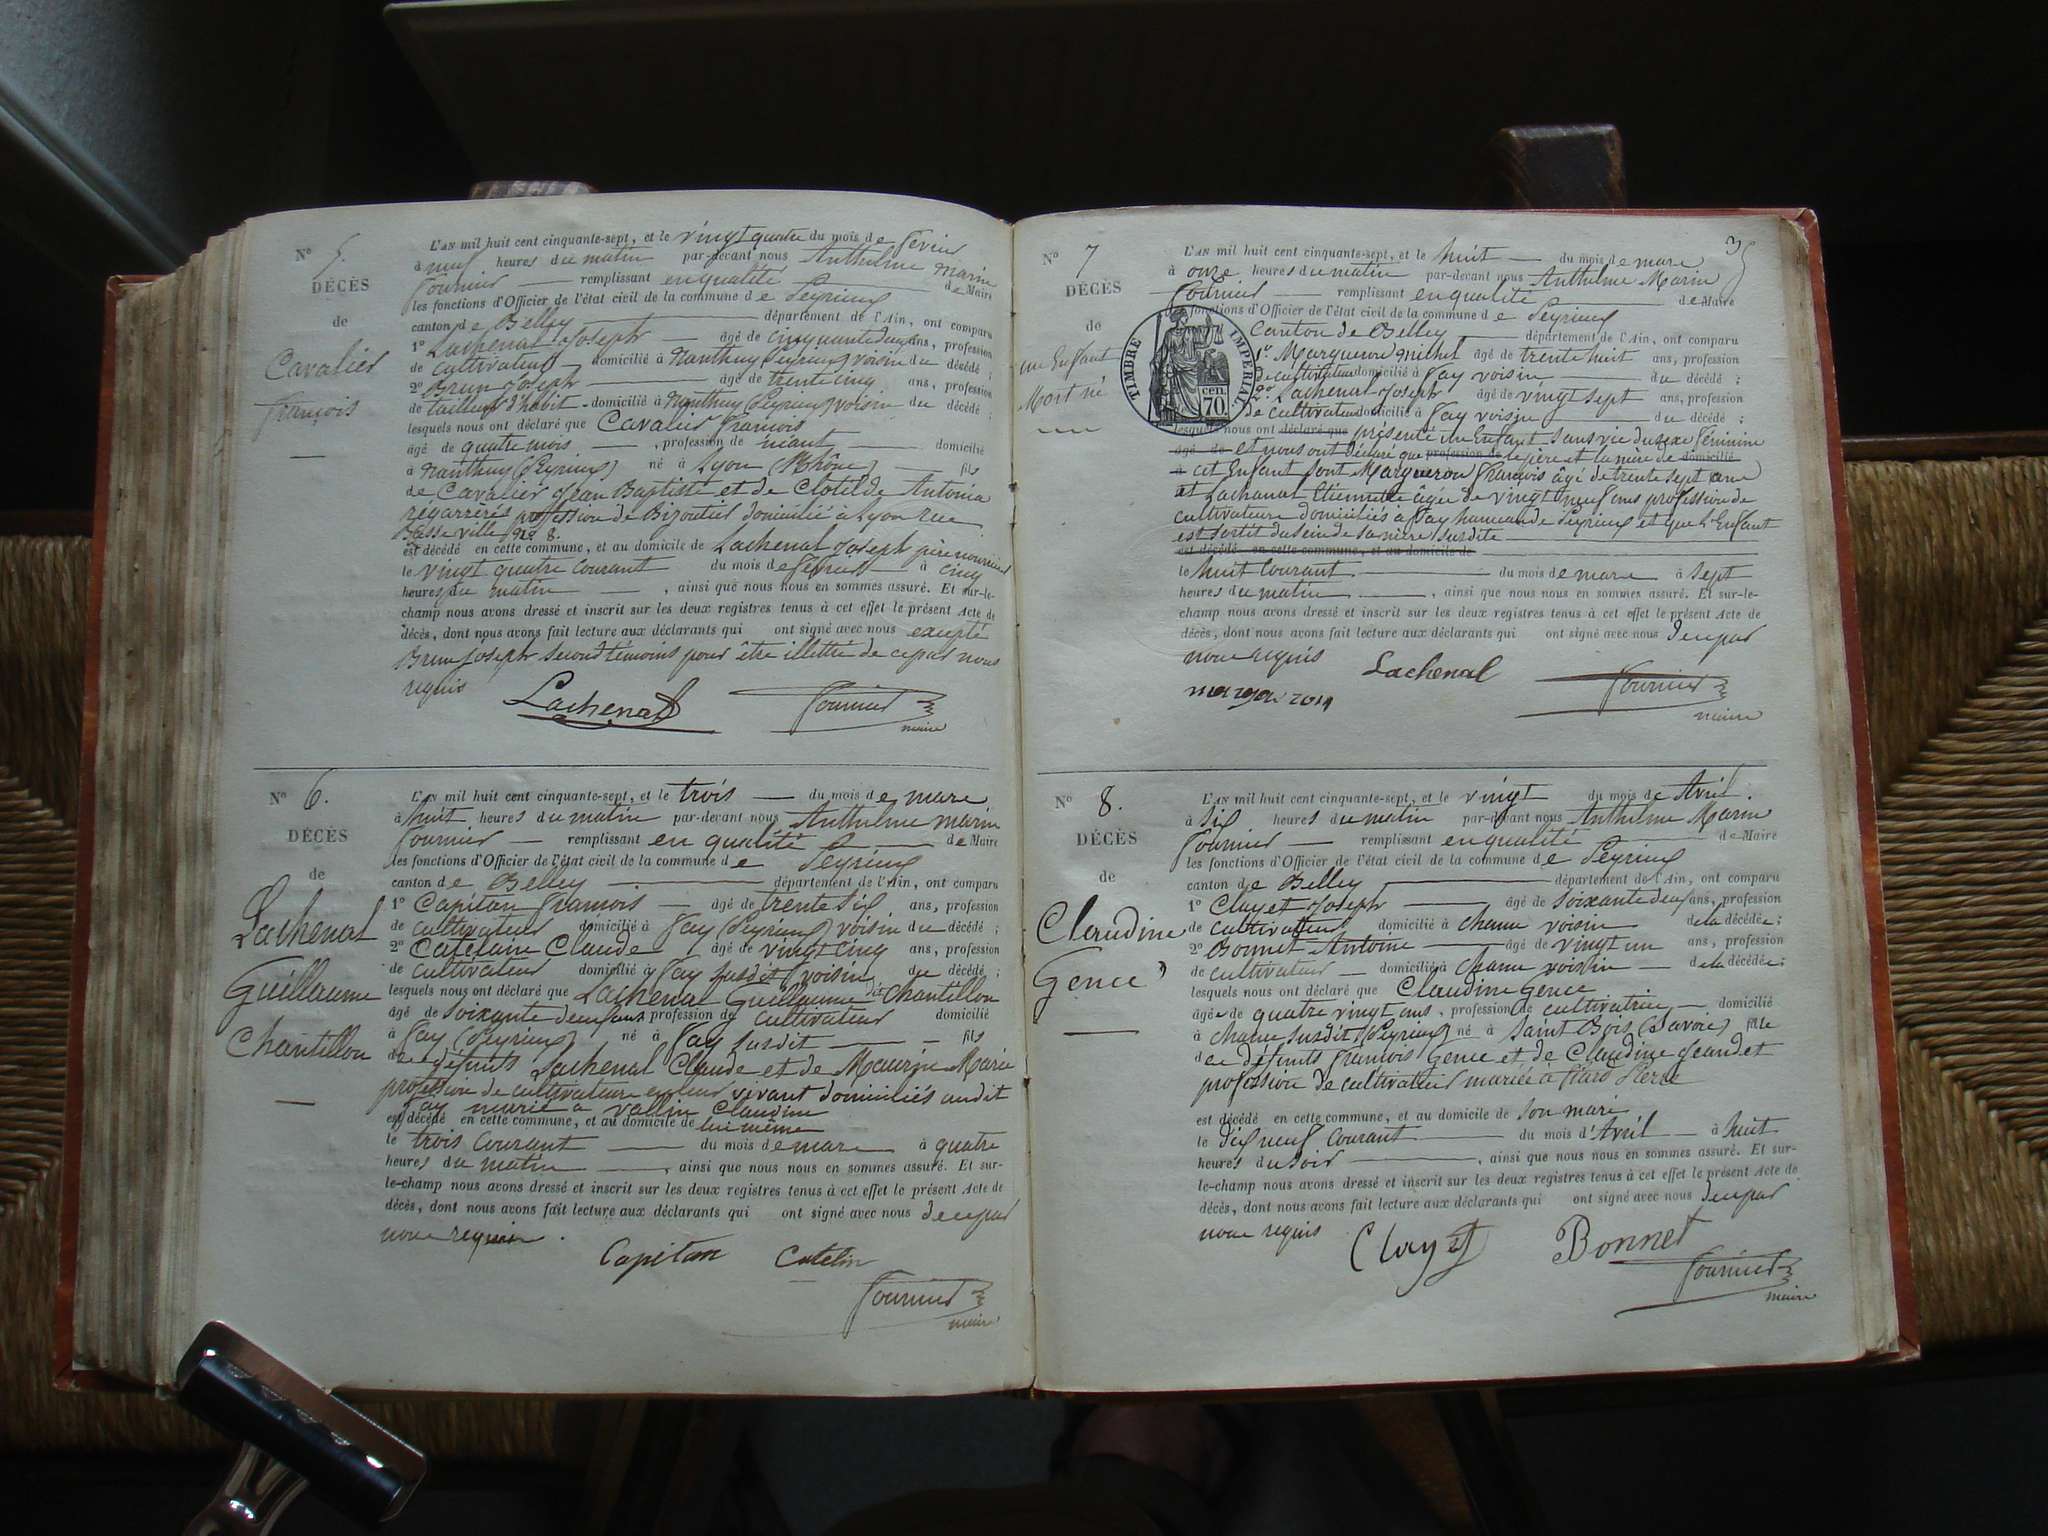 N° 5.
DÉCÈS
de
Cavalier
François
L'AN mil huit cent cinquante-sept, et le vingt quatre du mois de février
à neuf heures du matin par-devant nous Anthelme Marin
Fournier remplissant en qualité de Maire
les fonctions d'Officier de l'état civil de la commune de Peyrieux
canton de Belley département de l'Ain, ont comparu
1° Lachenal Joseph âgé de cinquante deux ans, profession
de cultivateur domicilié à Nanthuy (Peyrieux) voisin du décédé ;
2° Brun Joseph âgé de trente cinq ans, profession
de tailleur d'habit domicilié à Nanthuy (Peyrieux) voisin du décédé ;
lesquels nous ont déclaré que Cavalier François
âgé de quatre mois , profession de néant domicilié
à Nanthuy (Peyrieux) né à Lyon (Rhône) fils
de Cavalier Jean Baptiste et de Clotilde Antonia
profession de Bijoutier domicilié à Lyon rue
Basse ville N° 8.
est décédé en cette commune, et au domicile de Lachenal Joseph père nourricier
le vingt quatre courant du mois de février à cinq
heures du matin , ainsi que nous nous en sommes assuré. Et sur-le-
champ nous avons dressé et inscrit sur les deux registres tenus à cet effet le présent Acte de
décès, dont nous avons fait lecture aux déclarants qui ont signé avec nous excepté
Brun Joseph second témoins pour être illettré de ce par nous
requis
Lachenal Fournier
maire
N° 6.
DÉCÈS
de
Lachenal
Guillaume
Chantillon
L'AN mil huit cent cinquante-sept, et le trois du mois de mars
à huit heures du matin par-devant nous Anthelme Marin
Fournier remplissant en qualité de Maire
les fonctions d'Officier de l'état civil de la commune de Peyrieux
canton de Belley département de l'Ain, ont comparu
1° Capitan François âgé de trente six ans, profession
de cultivateur domicilié à Fay (Peyrieux) voisin du décédé ;
2° Catelain Claude âgé de vingt cinq ans, profession
de cultivateur domicilié à Fay susdit voisin du décédé ;
lesquels nous ont déclaré que Lachenal Guillaume dit Chantillon
âgé de soixante deux ans profession de cultivateur domicilié
à Fay (Peyrieux) né à Fay susdit fils
de défunts Lachenal Claude et de Maurin Marie
profession de cultivateurs en leur vivant domiciliés audit
Fay marié à Vallin Claudine
est décédé en cette commune, et au domicile de lui même
le trois courant du mois de mars à quatre
heures du matin , ainsi que nous nous en sommes assuré. Et sur-
le-champ nous avons dressé et inscrit sur les deux registres tenus à cet effet le présent Acte de
décès, dont nous avons fait lecture aux déclarants qui ont signé avec nous de ce par
nous requis .
Capitan Catelin
Fournier
maire
3
N° 7
DÉCÈS
de
un Enfant
Mort né
TIMBRE IMPERIAL
70 cen.
L'AN mil huit cent cinquante-sept, et le huit du mois de mars
à onze heures du matin par-devant nous Anthelme Marin
Fournier remplissant en qualité de Maire
fonctions d'Officier de l'état civil de la commune de Peyrieux
Canton de Belley département de l'Ain, ont comparu
1° Margueron Michel âgé de trente huit ans, profession
de cultivateur domicilié à Fay voisin du décédé ;
2° Lachenal Joseph âgé de vingt sept ans, profession
de cultivateur domicilié à Fay voisin du décédé ;
lesquels nous ont déclaré que présenté un Enfant sans vie du sexe féminin
âgé de et nous ont déclaré que profession de le père et la mère de domicilié
à cet Enfant sont Margueron François âgé de trente sept ans
et Lachanat Etiennette âgée de vingt neuf ans profession de
cultivateurs domiciliés à Fay hameau de Peyrieux et que l'Enfant
est sortit du sein de sa mère susdite
est décédé en cette commune, et au domicile de
le huit courant du mois de mars à sept
heures du matin , ainsi que nous nous en sommes assuré. Et sur-le-
champ nous avons dressé et inscrit sur les deux registres tenus à cet effet le présent Acte de
décès, dont nous avons fait lecture aux déclarants qui ont signé avec nous de ce par
nous requis Lachenal Fournier
maire
N° 8.
DÉCÈS
de
Claudine
Gence
L'AN mil huit cent cinquante-sept, et le vingt du mois de Avril.
à six heures du matin par-devant nous Anthelme Marin
Fournier remplissant en qualité de Maire
les fonctions d'Officier de l'état civil de la commune de Peyrieux
canton de Belley département de l'Ain, ont comparu
1° Clayet Joseph âgé de soixante deux ans, profession
de cultivateur domicilié à Chane voisin de la décédée ;
2° Bonnet Antoine âgé de vingt un ans, profession
de cultivateur domicilié à Chane voisin de la décédée ;
lesquels nous ont déclaré que Claudine Gence
âgée de quatre vingt ans, profession de cultivatrice domicilié
à Chane susdit (Peyrieux) né à Saint Bois (Savoie) fille
de défunts François Gence et de Claudine Jeandet
profession de cultivateurs mariée à Pierre
est décédé en cette commune, et au domicile de son mari
le dix neuf courant du mois d'Avril à huit
heures du soir , ainsi que nous nous en sommes assuré. Et sur-
le-champ nous avons dressé et inscrit sur les deux registres tenus à cet effet le présent Acte de
décès, dont nous avons fait lecture aux déclarants qui ont signé avec nous de ce par
nous requis Clayet Bonnet
Fournier
maire